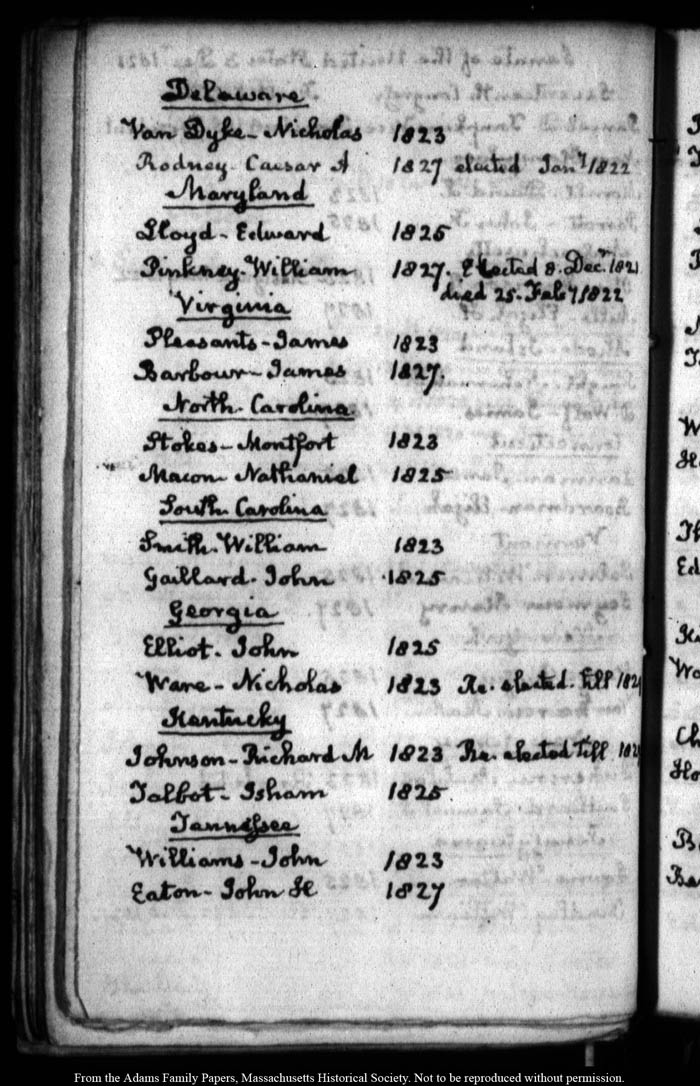 Delaware
Van Dyke - Nicholas 1823
Rodney. Caesar A 1827 elected Jany 1822
Maryland
Lloyd - Edward 1825
Pinkney. William 1827. Elected 8. Decr 1821
died 25. Feby 1822
Virginia
Pleasants - James 1823
Barbour - James 1827.
North. Carolina
Stokes - Montfort 1823
Macon Nathaniel 1825
South Carolina
Smith. William 1823
Gaillard. John 1825
Georgia
Elliot. John 1825
Ware - Nicholas 1823 Re. elected. till
Kentucky
Johnson - Richard M 1823 Re. elected till
Talbot - Isham 1825
Tennessee
Williams - John 1823
Eaton - John H 1827
From the Adams Family Papers, Massachusetts Historical Society. Not to be reproduced without permission.